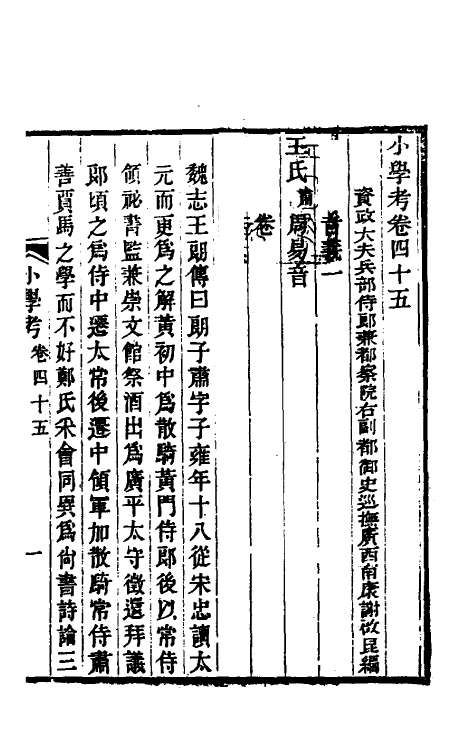 小學考卷四十五
資政大夫兵部侍郎兼都察院右副都御史巡撫廣西南康謝啟昆編
音義一
王氏肅周易音
卷
魏志王朗傳曰朗子肅字子雍年十八從宋忠讀太
元而更爲之解黃初中爲散騎黃門侍郎後以常侍
領祕書監兼崇文館祭酒出爲廣平太守徵還拜議
郎頃之爲侍中遷太常後遷中領軍加散騎常侍肅
善賈馬之學而不好鄭氏采會同異爲尙書詩論三
小學考 卷四十五 一